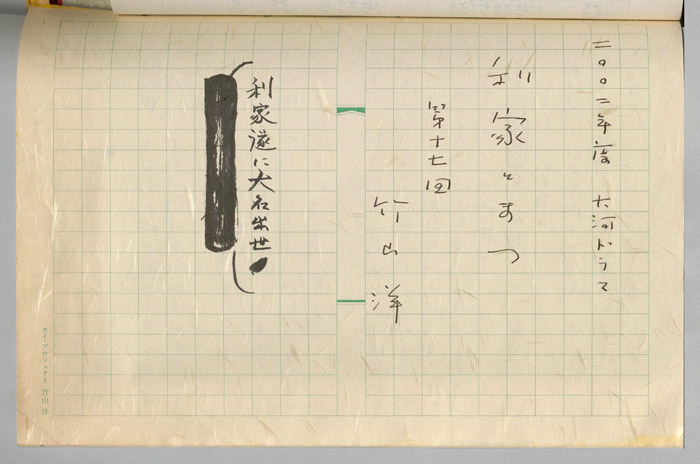 二〇〇二年度 大河ドラマ
利家とまつ
第十七回
竹山 洋
利家遂に大名出世
カイ・プロジェクト 竹山 洋